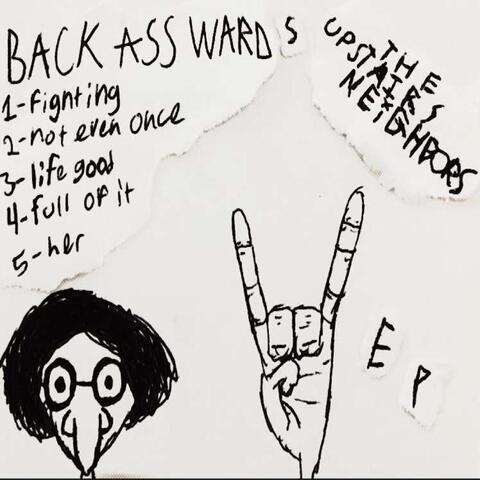 BACK ASS WARDS
1-fighting
2-not even once
3-life good
4-full of it
5-her
THE
UPSTAIRS
NEIGHBORS
EP